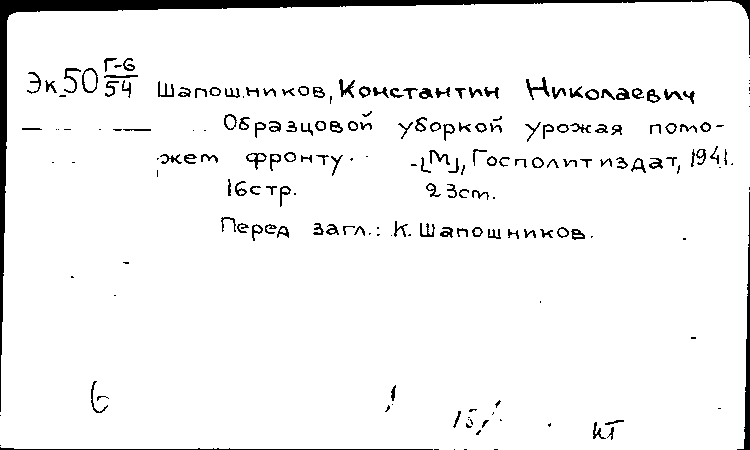 Эк.50 Г-6/54 Шапошников, Константин Николаевич
Образцовой уборкой урожая помо-
жем фронту. [М], Госполитиздат, 1941.
16стр. 23см.
Перед загл.: К. Шапошников.
6 15/ КТ